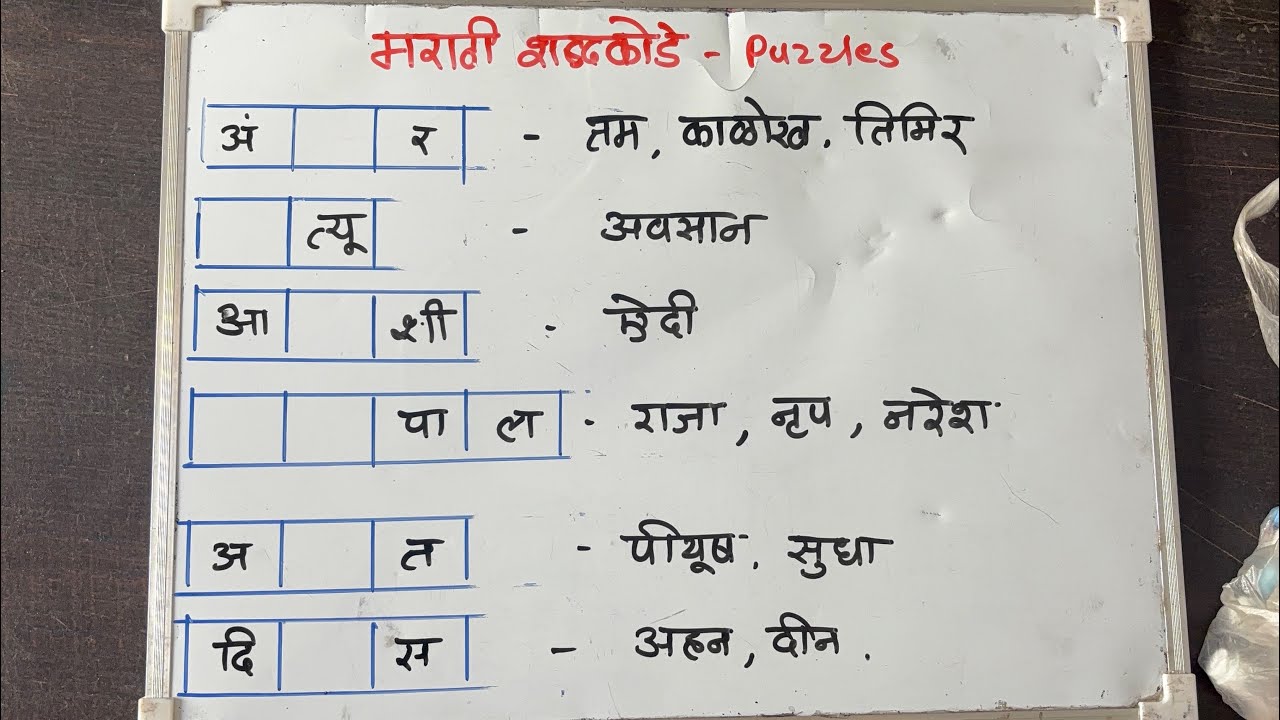 मराठी शब्दकोडे - Puzzles
अं र - तम, काळोख. तिमिर
त्यू - अवसान
आ शी - ऐदी
पा ल - राजा, नृप, नरेश
अ त - पीयूष. सुधा
दि स - अहन, दीन.